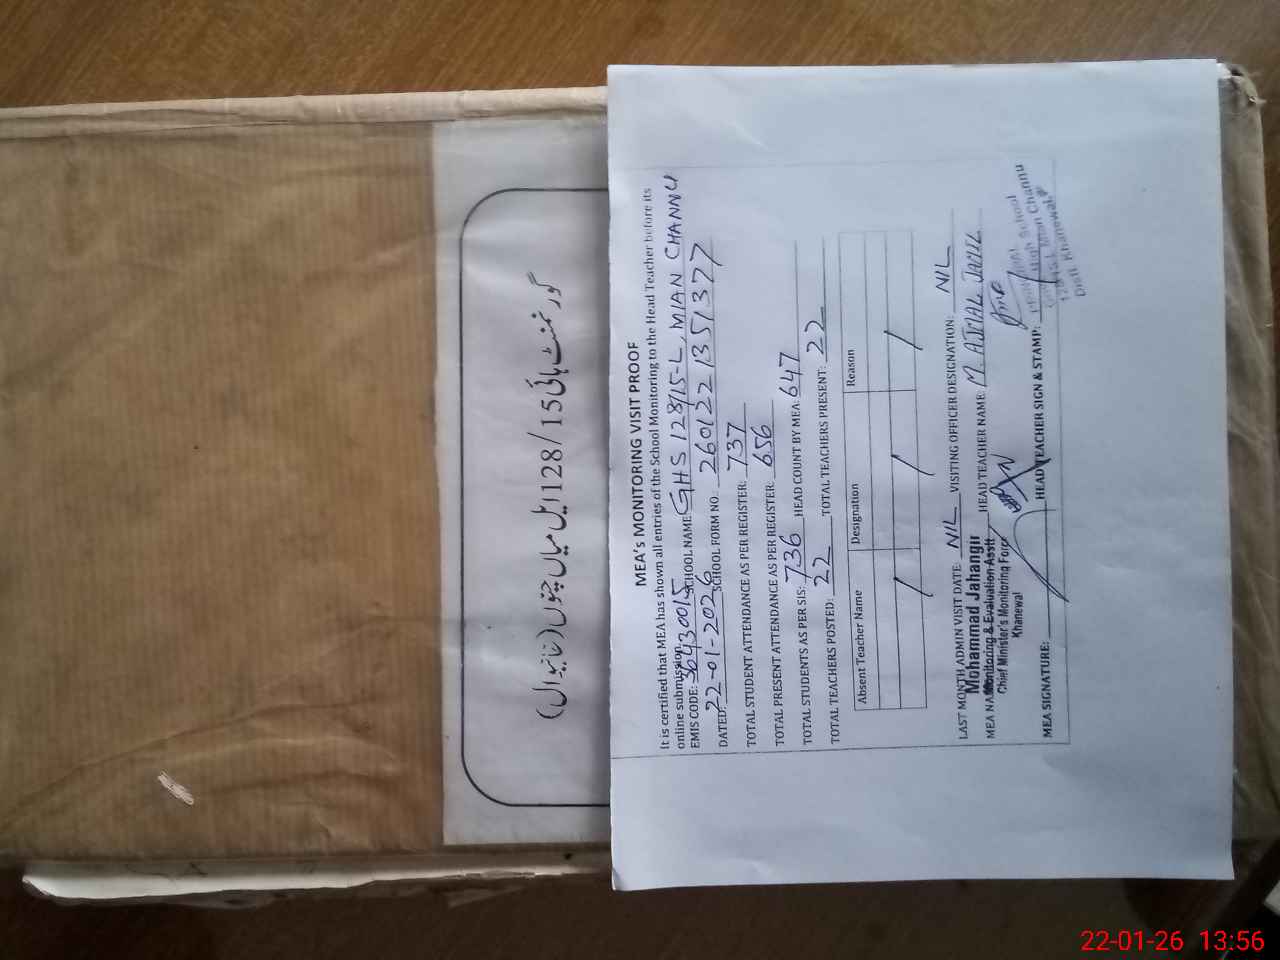 گورنمنٹ ہائی 128/15 ایل میاں چنوں (خانیوال)
MEA's MONITORING VISIT PROOF
It is certified that MEA has shown all entries of the School Monitoring to the Head Teacher before its
online submission.
EMIS CODE: 36430015 SCHOOL NAME: GHS 128/15-L, MIAN CHANNU
DATED: 22-01-2026 SCHOOL FORM NO. 260122 1351377
TOTAL STUDENT ATTENDANCE AS PER REGISTER: 737
TOTAL PRESENT ATTENDANCE AS PER REGISTER: 656
TOTAL STUDENTS AS PER SIS: 736 HEAD COUNT BY MEA: 647
TOTAL TEACHERS POSTED: 22 TOTAL TEACHERS PRESENT: 22
Absent Teacher Name Designation Reason
/ / /
LAST MONTH ADMIN VISIT DATE: NIL VISITING OFFICER DESIGNATION: NIL
MEA NA HEAD TEACHER NAME: M. AJMAL JAMIL
Mohammad Jahangir
Monitoring & Evaluation Asstt
Chief Minister's Monitoring Force
Khanewal
MEA SIGNATURE: HEAD TEACHER SIGN & STAMP:
High School
Mian Channu
Distt. Khanewal
22-01-26 13:56